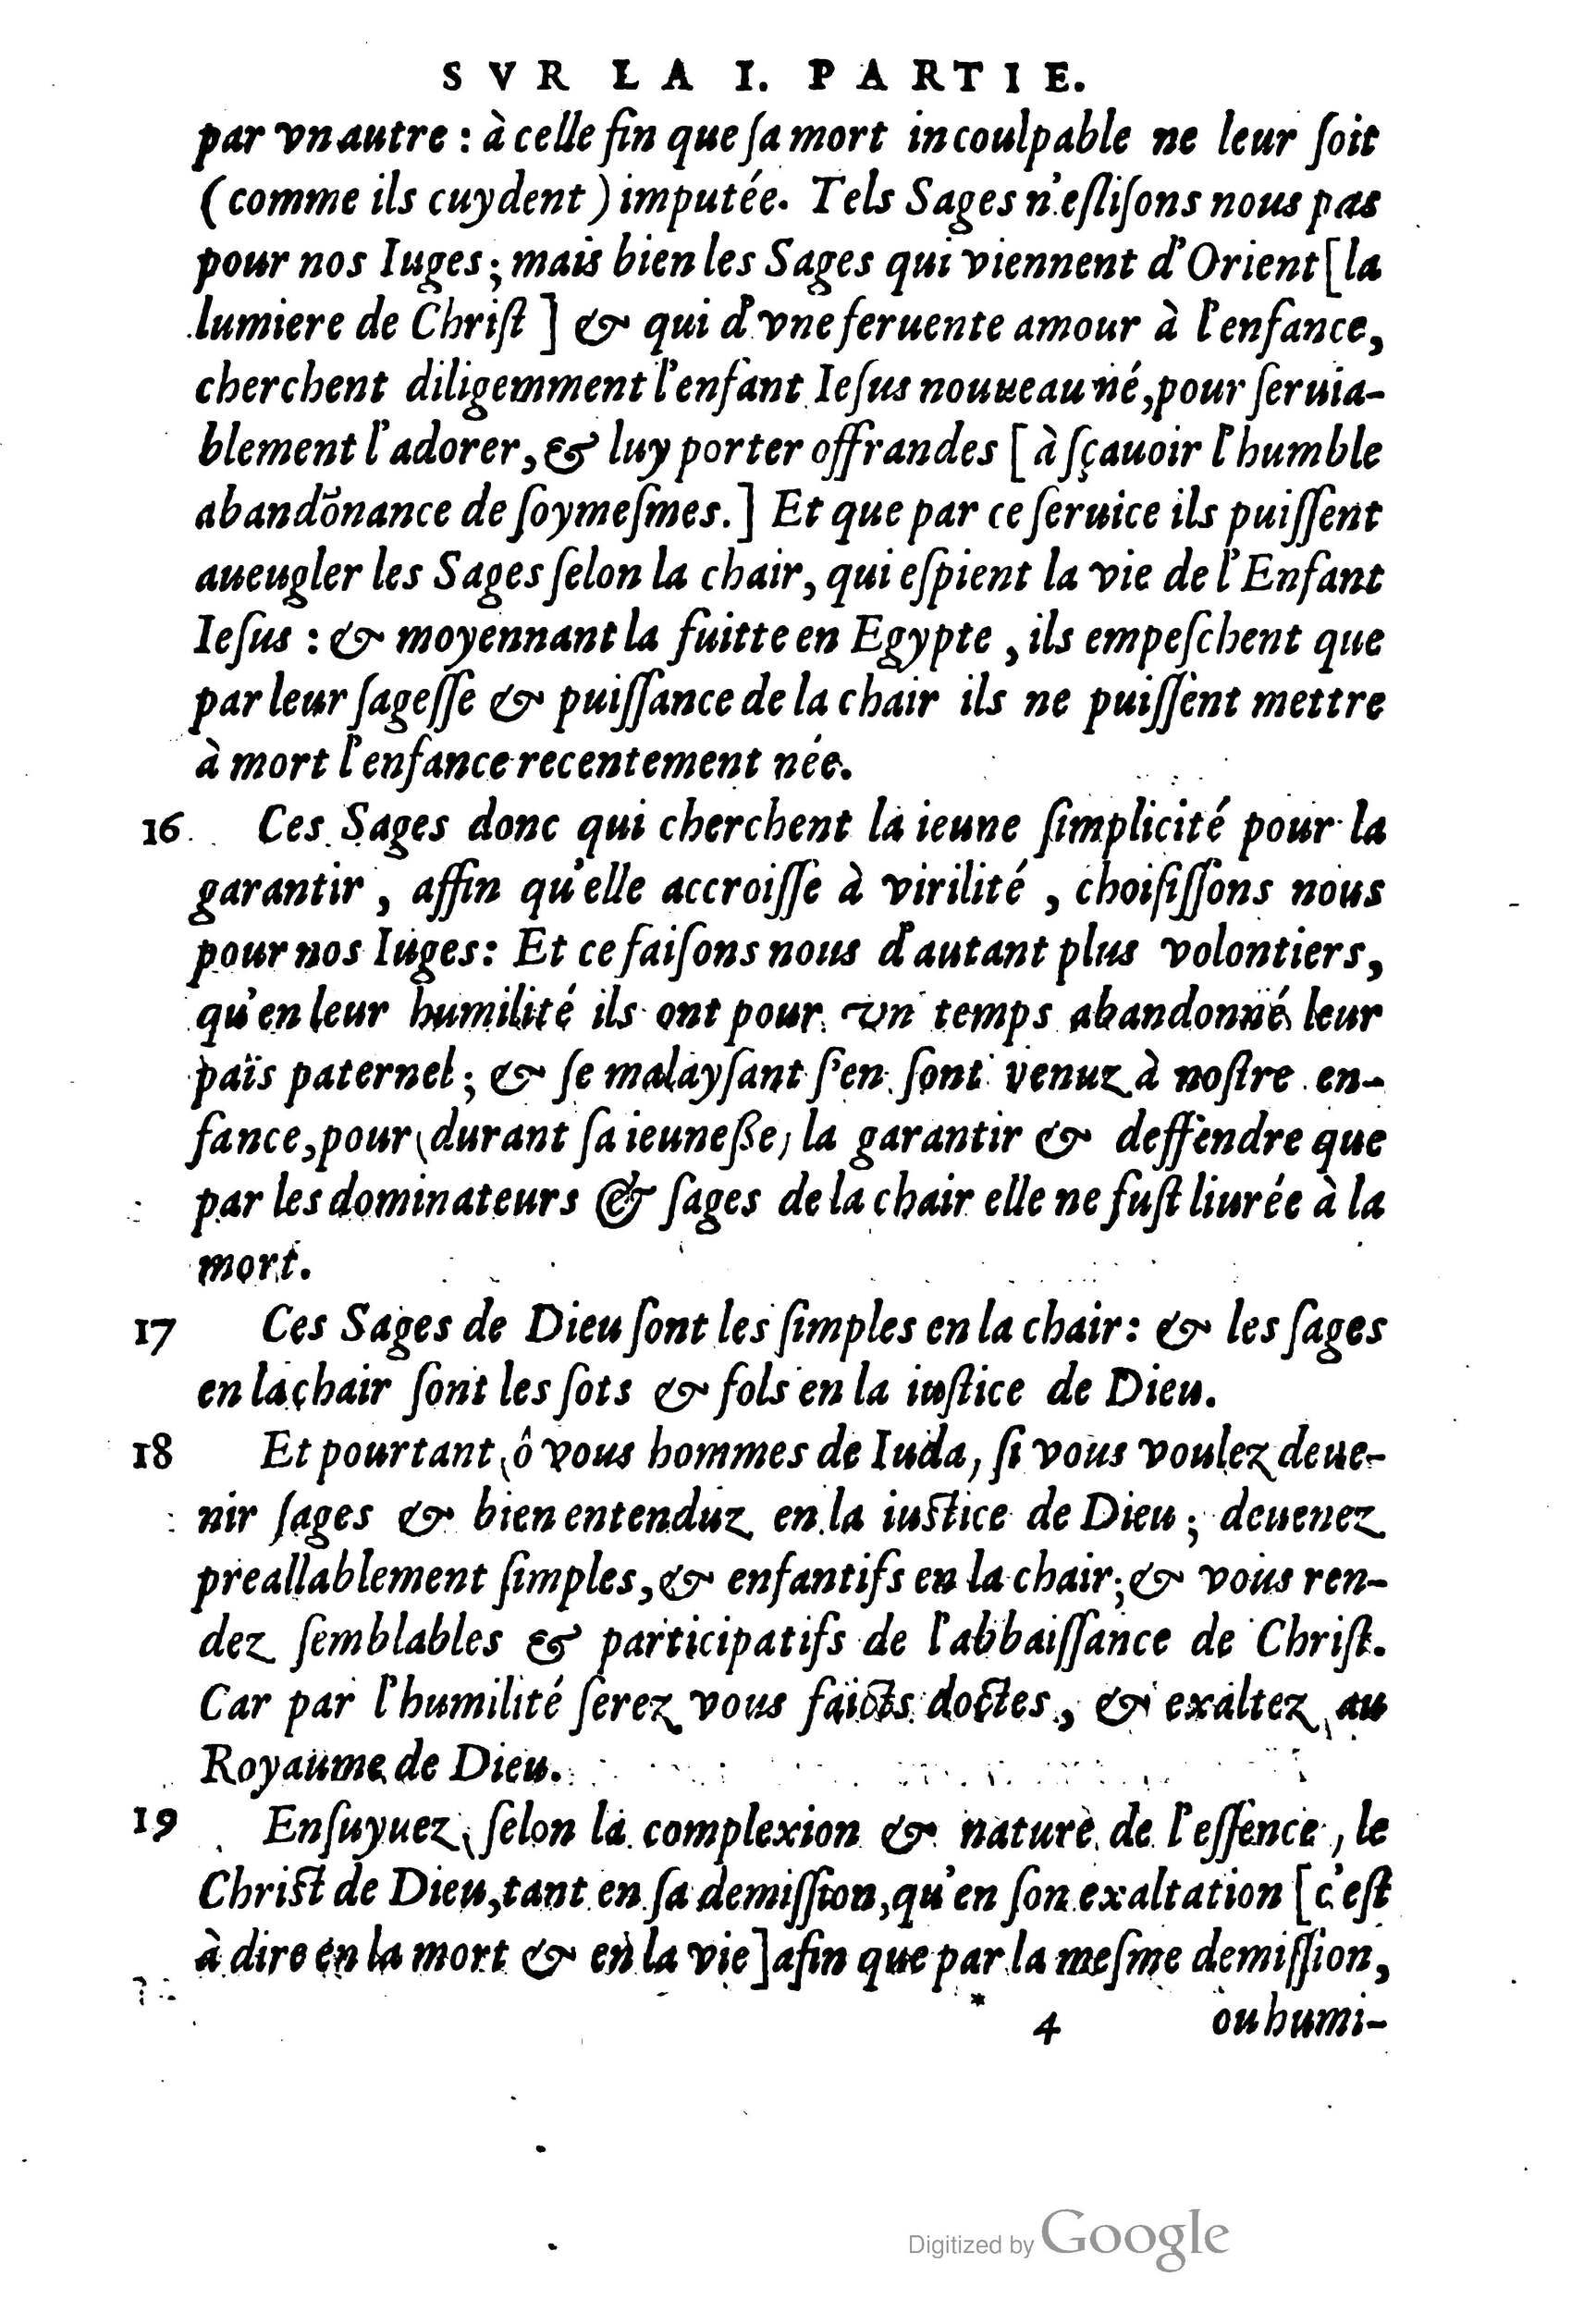 SVR LA I. PARTIE.
par vn autre : à celle fin que ſa mort incoulpable ne leur ſoit
(comme ils cuydent) imputée. Tels Sages n'eſliſons nous pas
pour nos Iuges; mais bien les Sages qui viennent d'Orient [la
lumiere de Chriſt] & qui d'vne feruente amour à l'enfance,
cherchent diligemment l'enfant Ieſus nouueau né, pour ſeruia-
blement l'adorer, & luy porter offrandes [à ſçauoir l'humble
abandõnance de ſoymeſmes.] Et que par ce ſeruice ils puiſſent
aueugler les Sages ſelon la chair, qui eſpient la vie de l'Enfant
Ieſus : & moyennant la fuitte en Egypte, ils empeſchent que
par leur ſageſſe & puiſſance de la chair ils ne puiſſent mettre
à mort l'enfance recentement née.
16 Ces Sages donc qui cherchent la ieune ſimplicité pour la
garantir, affin qu'elle accroiſſe à virilité, choiſiſſons nous
pour nos Iuges: Et ce faiſons nous d'autant plus volontiers,
qu'en leur humilité ils ont pour vn temps abandonné leur
païs paternel; & ſe malayſant ſ'en ſont venuz à noſtre en-
fance, pour (durant ſa ieuneße) la garantir & deffendre que
par les dominateurs & ſages de la chair elle ne fuſt liurée à la
mort.
17 Ces Sages de Dieu ſont les ſimples en la chair: & les ſages
en la chair ſont les ſots & fols en la iuſtice de Dieu.
18 Et pourtant, ô vous hommes de Iuda, ſi vous voulez deue-
nir ſages & bien entenduz en la iuſtice de Dieu; deuenez
preallablement ſimples, & enfantifs en la chair; & vous ren-
dez ſemblables & participatifs de l'abbaiſſance de Chriſt.
Car par l'humilité ſerez vous faicts doctes, & exaltez au
Royaume de Dieu.
19 Enſuyuez, ſelon la complexion & nature de l'eſſence, le
Chriſt de Dieu, tant en ſa demiſſion, qu'en ſon exaltation [c'eſt
à dire en la mort & en la vie] afin que par la meſme demiſſion,
* 4 ou humi-
Digitized by Google